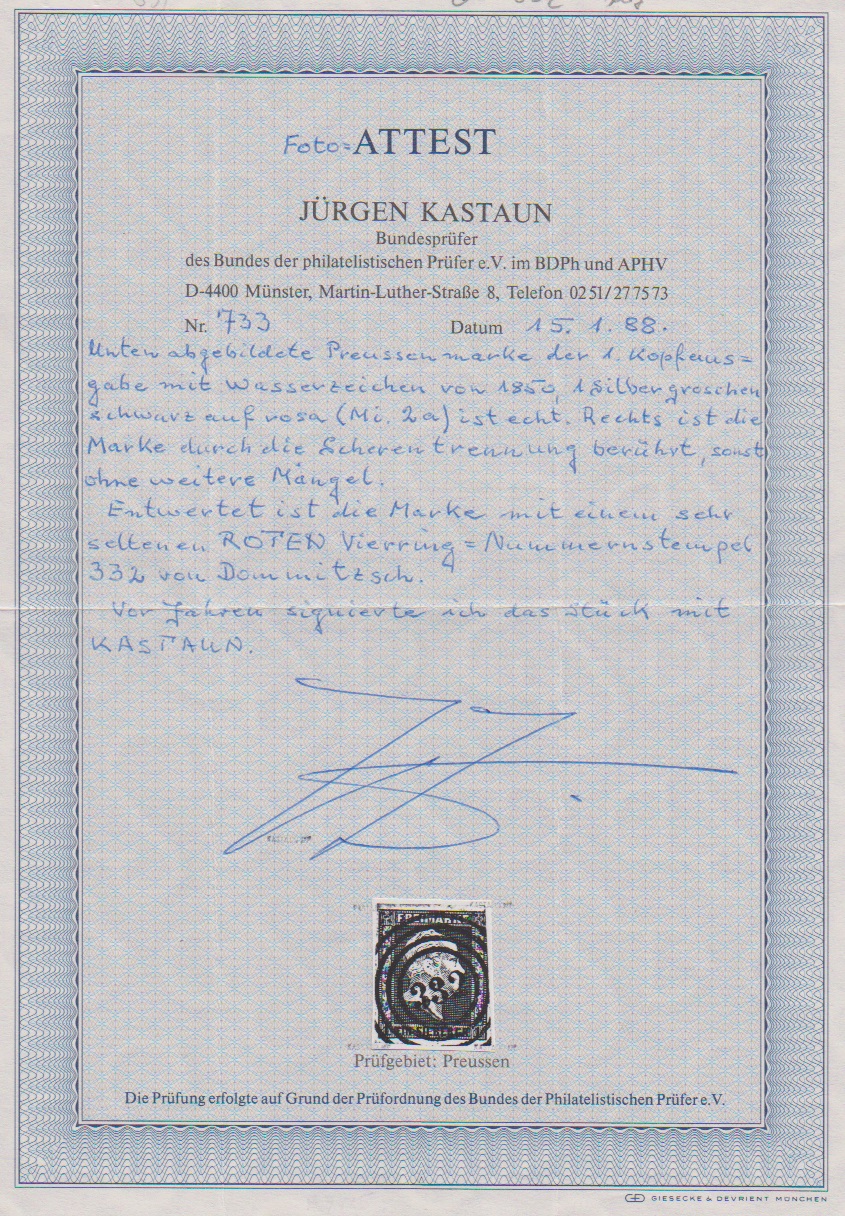 Foto=ATTEST
JÜRGEN KASTAUN
Bundesprüfer
des Bundes der philatelistischen Prüfer e.V. im BDPh und APHV
D-4400 Münster, Martin-Luther-Straße 8, Telefon 02 51/27 75 73
Nr. 733 Datum 15. 1. 88.
Unten abgebildete Preussenmarke der 1. Kopfaus=
gabe mit Wasserzeichen von 1850, 1 Silbergroschen
schwarz auf rosa (Mi. 2a) ist echt. Rechts ist die
Marke durch die Scherentrennung berührt, sonst
ohne weitere Mängel.
Entwertet ist die Marke mit einem sehr
seltenen ROTEN Vierring=Nummernstempel
332 von Dommitzsch.
Vor Jahren signierte ich das Stück mit
KASTAUN.
FREIMARKE
332
Prüfgebiet: Preussen
Die Prüfung erfolgte auf Grund der Prüfordnung des Bundes der Philatelistischen Prüfer e.V.
GIESECKE & DEVRIENT MÜNCHEN